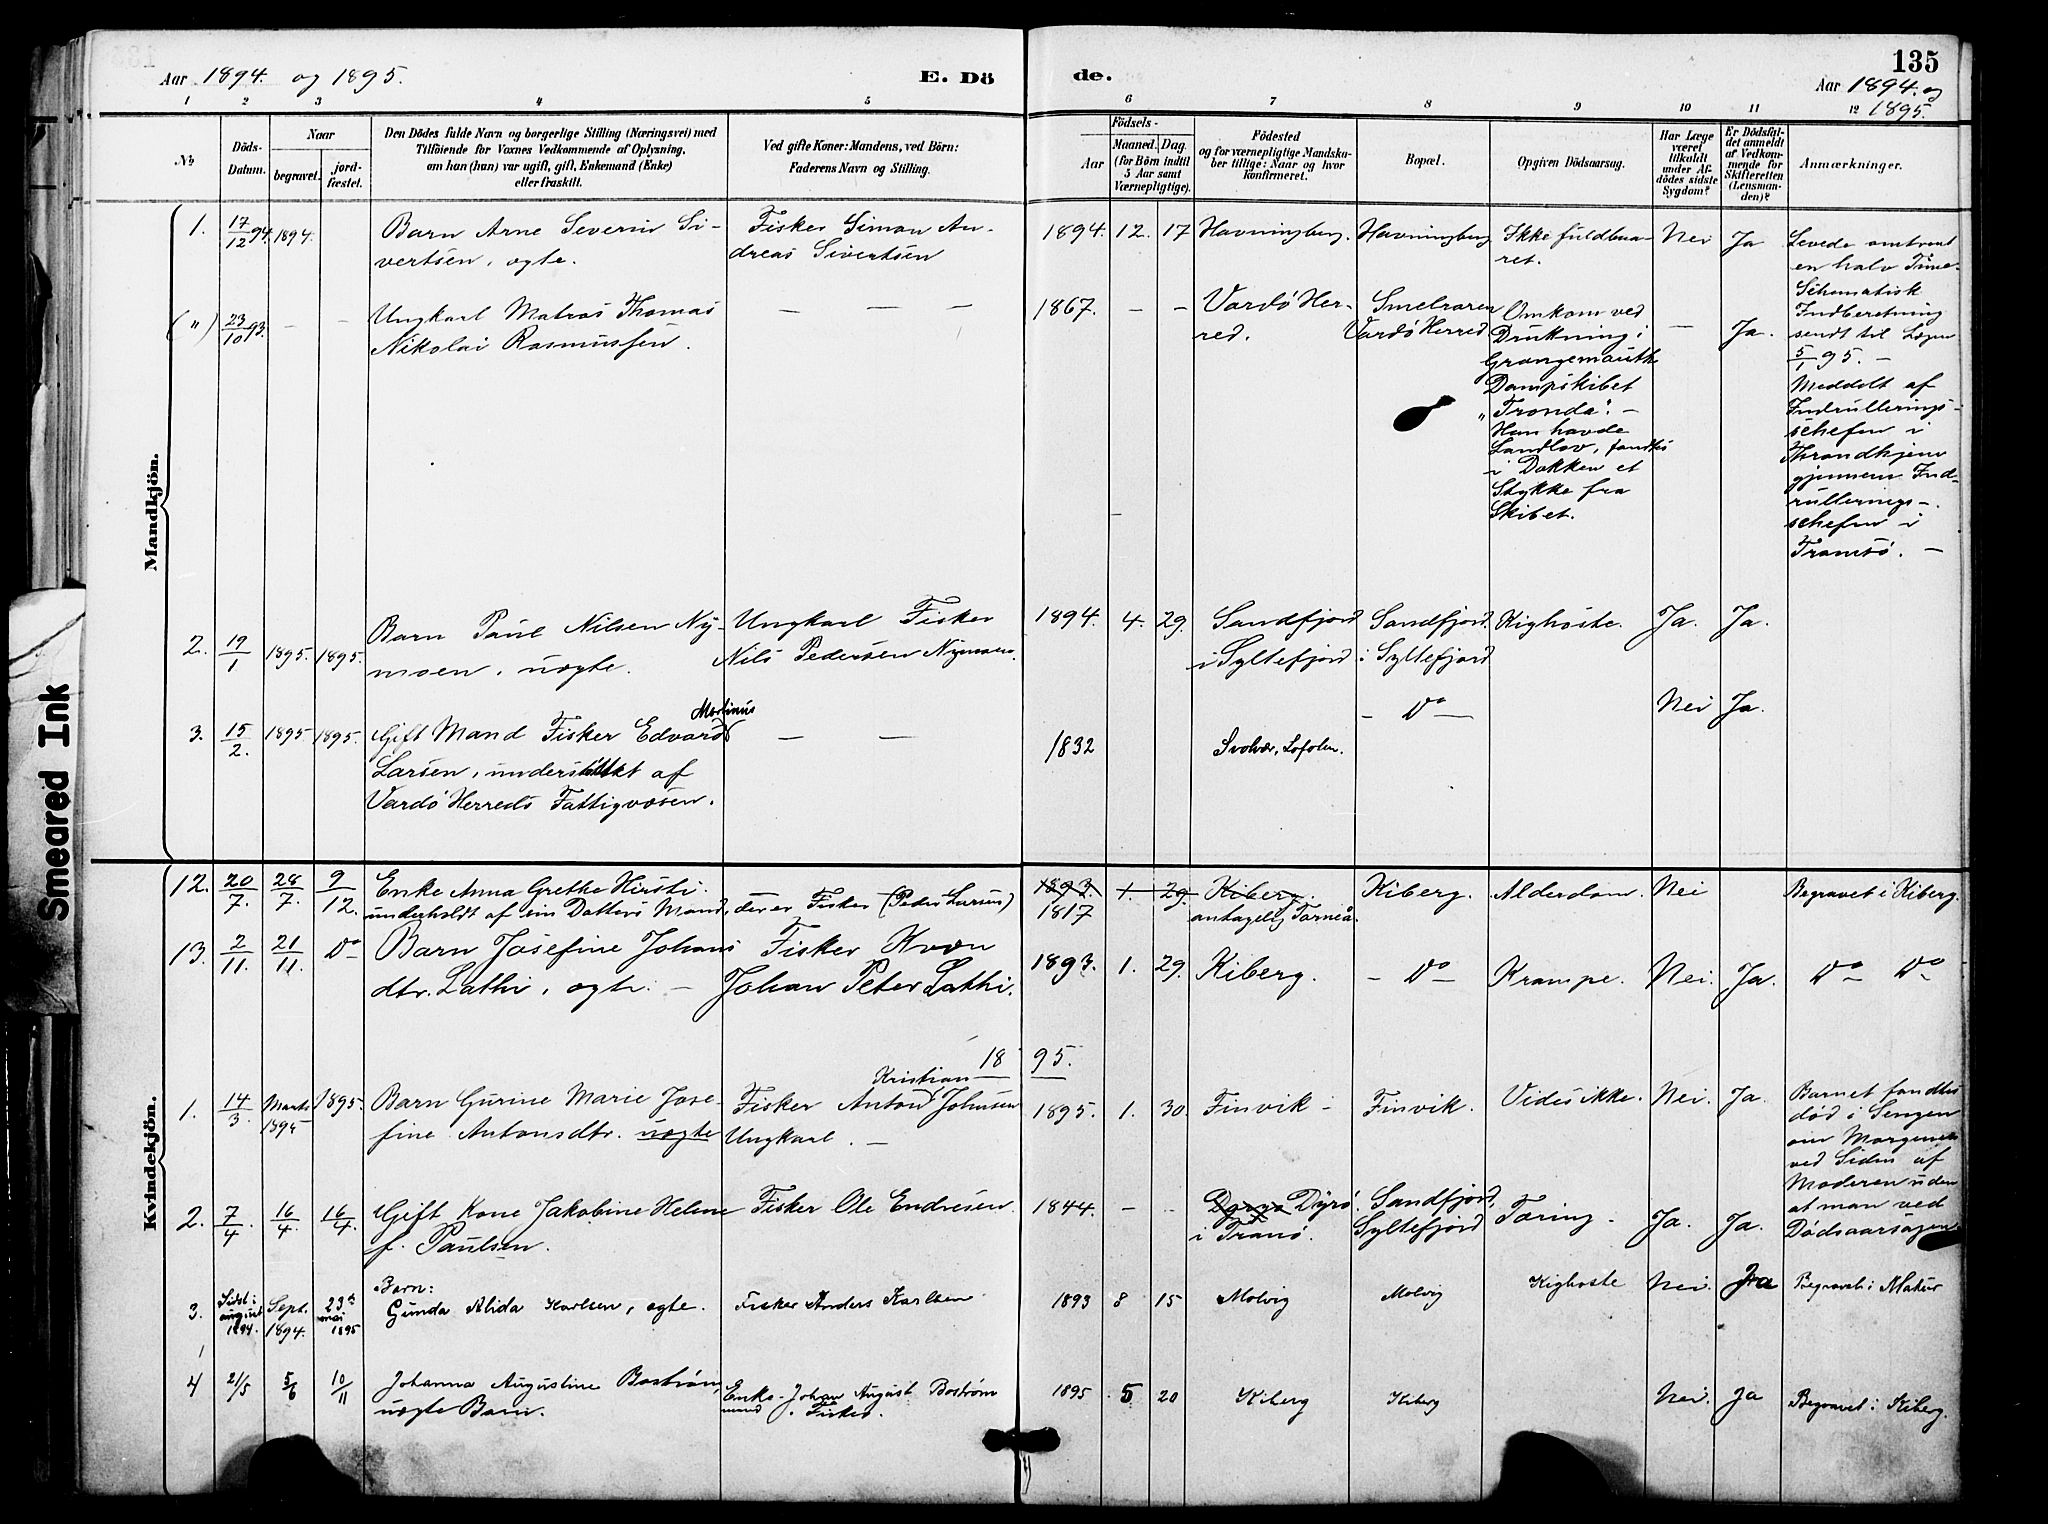 Aar 1894. og 1895.
E. Dö
de.
135
Aar 1894. og
1895.
1 2 3 4 5 6 7 8 9 10 11 12
No
Döds-
Datum.
Naar
begravet.
jord-
fæstet.
Den Dödes fulde Navn og borgerlige Stilling (Næringsvei) med
Tilföiende for Voxnes Vedkommende af Oplysning,
om han (hun) var ugift, gift, Enkemand (Enke)
eller fraskilt.
Ved gifte Koner: Mandens, ved Börn:
Faderens Navn og Stilling.
Födsels-
Aar
Maaned. Dag.
(for Börn indtil
5 Aar samt
Værnepligtige).
Födested
og for værnepligtige Mandska-
ber tillige: Naar og hvor
konfirmeret.
Bopæl.
Opgiven Dödsaarsag.
Har Læge
været
tilkaldt
under Af-
dödes sidste
Sygdom?
Er Dödsfal-
det anmeldt
af Vedkom-
mende for
Skifteretten
(Lensman-
den)?
Anmærkninger.
Mandkjön.
1. 17/12 94. 1894.
Barn Arne Severin Si-
vertsen, ægte.
Fisker Simon An-
dreas Sivertsen
1894. 12. 17
Havningberg.
Havningberg
Ikke fuldbaa-
ret.
Nei
Ja
Levede omtrent
en halv Time.
Schematisk
Indberetning
sendt til Lægen
5/1 95. —
(") 23/10 93. — —
Ungkarl Matros Thomas
Nikolai Rasmussen.
— — —
1867. — —
Vardö Her-
red.
Smelroren
Vardö Herred
Omkom ved
Drukning i
Grangemouth
Dampskibet
"Tronda". —
Han havde
Landlov, fandtes
i Dokken et
Stykke fra
Skibet.
—
Ja.
Meddelt af
Indrullerings-
schefen i
Throndhjem
gjennem Ind-
rullerings-
schefen i
Tromsö. —
2. 19/1 1895. 1895.
Barn Paul Nilsen Ny-
moen, uægte.
Ungkarl Fisker
Nils Pedersen Nymoen.
1894. 4. 29.
Sandfjord
i Syltefjord
Sandfjord.
i Syltefjord
Kighoste.
Ja.
Ja.
3. 15/2. 1895 1895.
Martinus
Gift Mand Fisker Edvard
Larsen, understöttet af
Vardö Herreds Fattigvæsen.
— —
1832
Svolvær, Lofoten.
— Do —
Nei
Ja.
Kvindekjön.
12. 20/7. 28/7. 9/12.
Enke Anna Grethe Hirsti.
underholdt af sin Datters Mand,
der er Fisker (Peder Larsen)
1893. 1. 29.
1817
Kiberg.
antagelig Torneå.
Kiberg.
Alderdom.
Nei
Begravet i Kiberg.
13. 2/11. 21/11. Do
Barn Josefine Johans
dtr. Lathi, ægte. —
Fisker Kvæn
Johan Peter Lathi.
1893. 1. 29.
Kiberg.
— Do —
Krampe.
Nei.
Ja.
Do Do
1895.
1. 14/3. Marts 1895 1895.
Barn Gurine Marie Jose-
fine Antonsdtr. uægte
Kristian
Fisker Anton Johnsen
Ungkarl. —
1895. 1. 30.
Finvik —
Finvik.
Vides ikke.
Nei.
Ja.
Barnet fandtes
död i Sengen
om Morgenen
ved Siden af
Moderen uden
at man ved
Dödsaarsagen
2. 7/4. 16/4. 16/4.
Gift Kone Jakobine Helene
f. Paulsen.
Fisker Ole Endresen.
1844. — —
Dyrö.
i Tranö.
Sandfjord,
Syltefjord
Tæring —
Ja.
Ja.
3. Sidst i august 1894. Sept. 1894. 23de mai 1895
Barn:
Gunda Alida Karlsen, ægte.
Fisker Anders Karlsen
1893 8 15
Molvig
Molvig
Kighoste
Nei.
Ja
Begravet i Makur
4 21/5 5/6 10/11
Johanna Augustine Boström,
uægte Barn.
Enke-
mand
Johan August Boström
. Fisker.
1895 5 20
Kiberg
Kiberg
Nei.
Ja
Begravet i Kiberg.
Smeared Ink